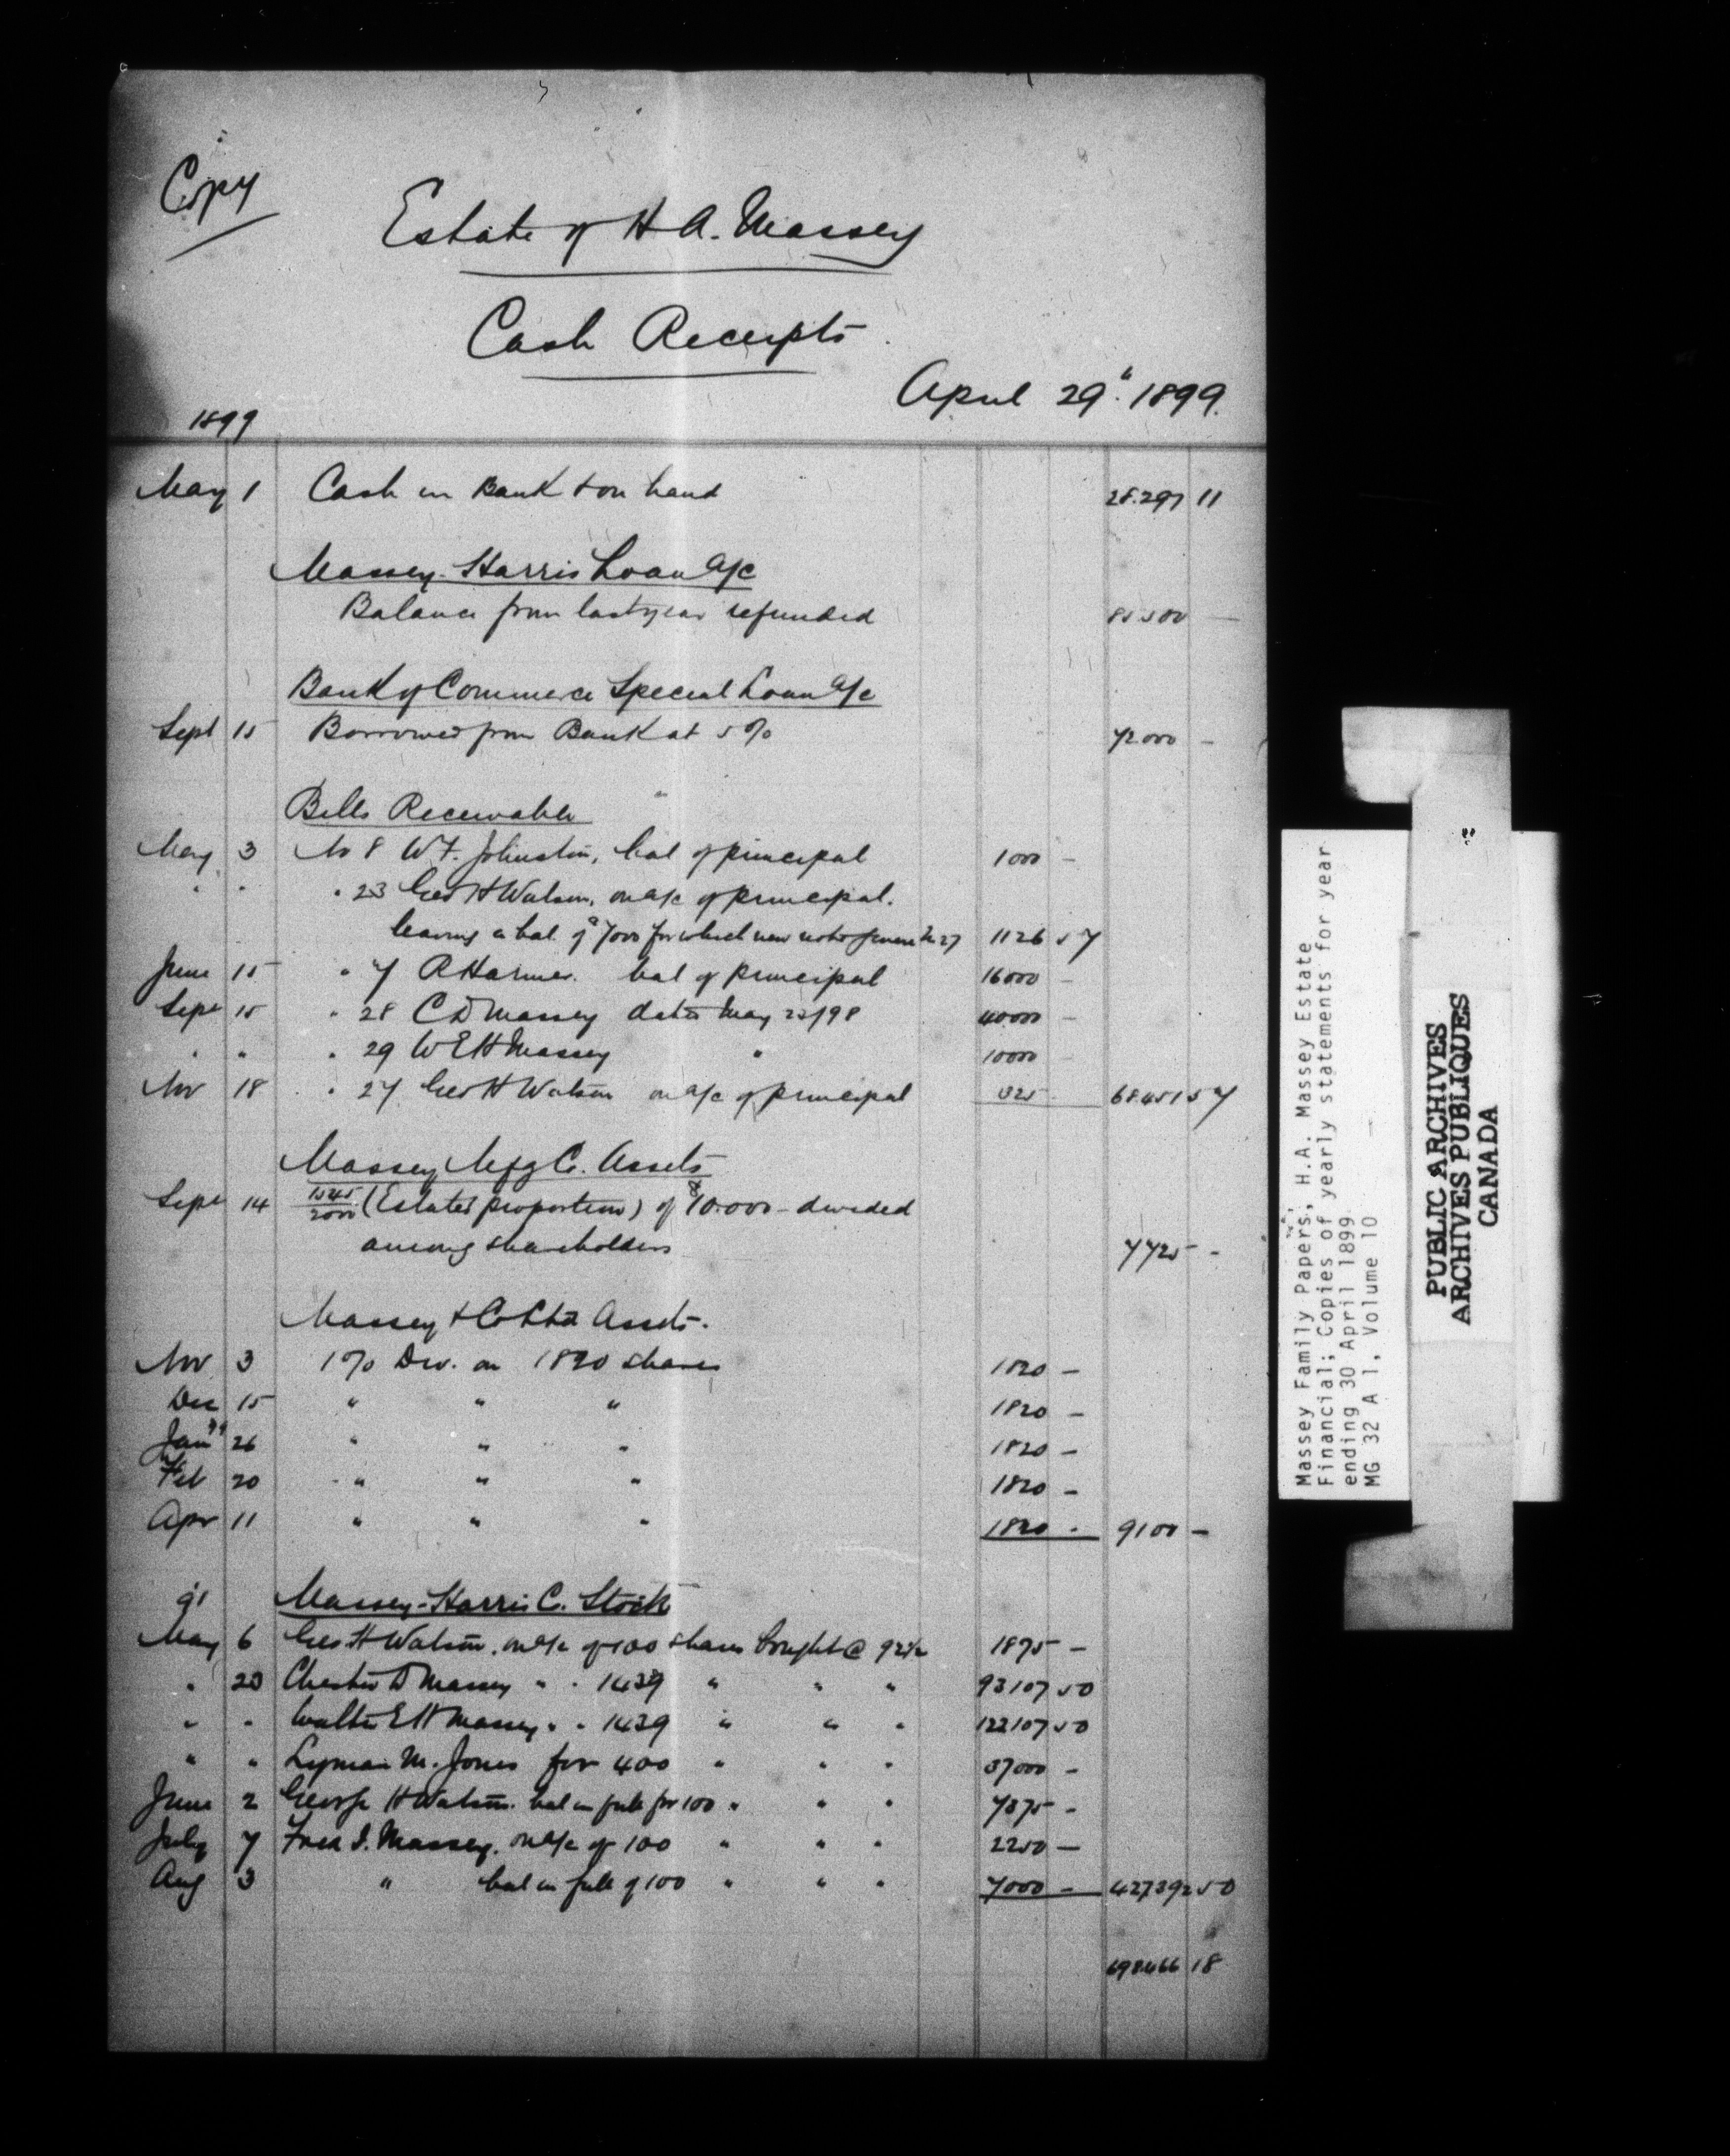 Copy
Estate of H A. Massey
Cash Receipts
April 29" 1899.
1899
May 1 Cash in Bank & on hand 28.297 11
Massey-Harris Loan a/c
Balance from last year refunded 85500 —
Bank of Commerce Special Loan a/c
Sept 15 Borrowed from Bank at 5% 72000 —
Bills Receivable
May 3 No 8 W.F. Johnston, bal of principal 1000 —
" " " 23 Geo H Watson, on a/c of principal.
leaving a bal. of 7000 for which new note given No 27 1126 57
June 15 " 7 R Harmer. bal of principal 16000 —
Sept 15 " 28 C D Massey dated May 23/98 40000 —
" " " 29 W E H Massey " 10000 —
Nov 18 " 27 Geo H Watson on a/c of principal 325 — 68451 57
Massey Mfg Co. Assets
Sept 14 1545/2000 (Estates proportion) of $10.000 — divided
among shareholders 7725 —
Massey & Co Ltd Assets.
Nov 3 1% Div. on 1820 shares 1820 —
Dec 15 " " " 1820 —
Jan'y 26 " " " 1820 —
Feb 20 " " " 1820 —
Apr 11 " " " 1820 — 9100 —
Massey-Harris Co. Stock
May 6 Geo H Watson. on a/c of 100 shares bought @ 92½ 1875 —
" 23 Chester D Massey " " 1439 " " " 93107 50
" " Walter E H Massey " " 1439 " " " 122107 50
" " Lyman M. Jones for 400 " " " 37000 —
June 2 George H Watson. bal in full for 100 " " " 7375 —
July 7 Fred I. Massey. on a/c of 100 " " " 2250 —
Aug 3 " bal in full of 100 " " " 7000 — 427392 50
698466 18
Massey Family Papers, H.A. Massey Estate
Financial; Copies of yearly statements for year
ending 30 April 1899
MG 32 A 1, Volume 10
PUBLIC ARCHIVES
ARCHIVES PUBLIQUES
CANADA